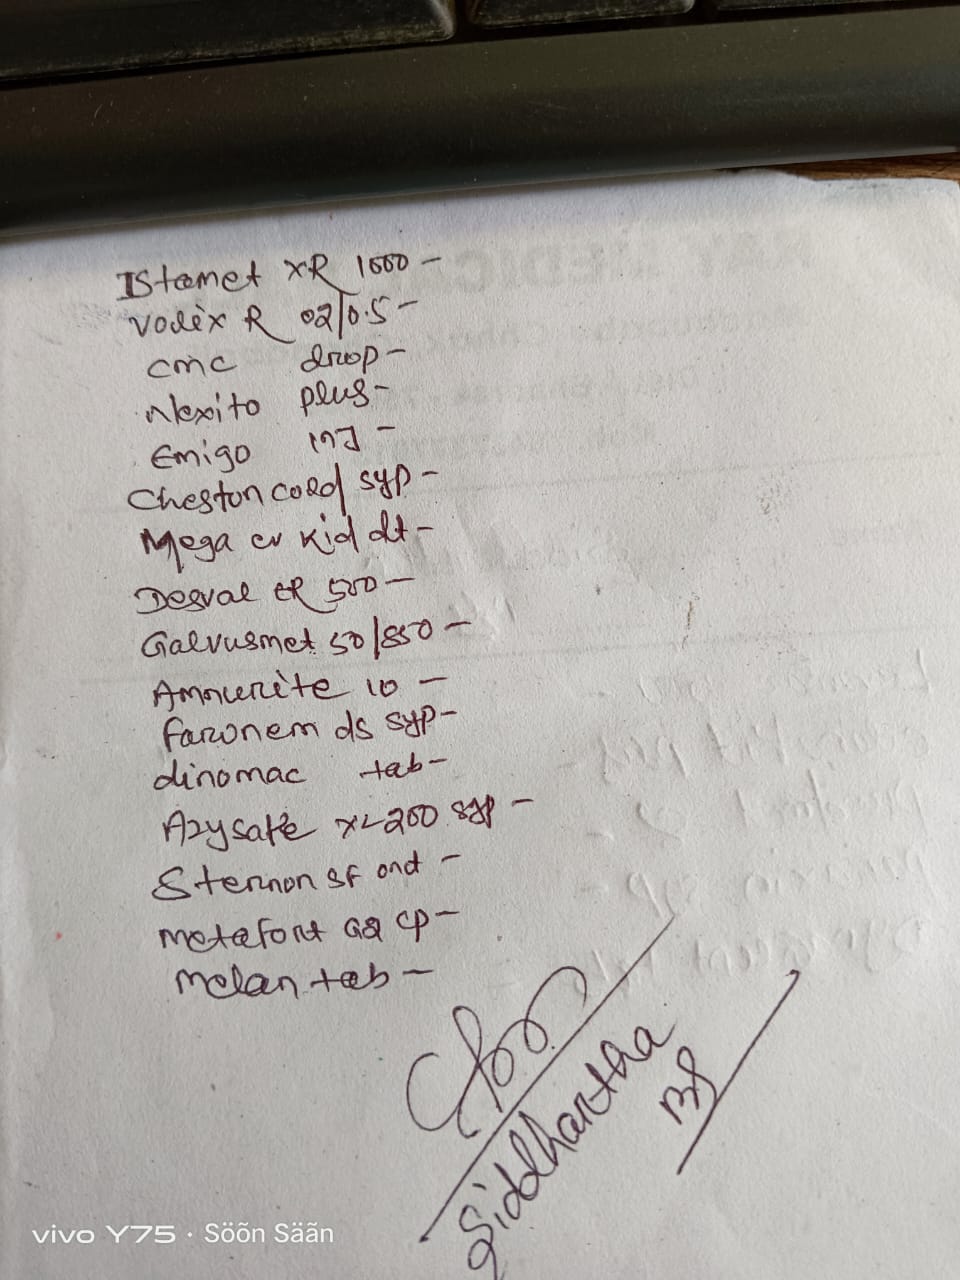 Istamet XR 1000 -
Vodix R 02/0.5 -
cmc drop -
Nexito plus -
Emigo inj -
Cheston cold syp -
Mega cv Kid dt -
Desval ER 500 -
Galvusmet 50/850 -
10 -
faronem ds syp -
dinomac tab -
Azysafe XL 200 syp -
Sternon SF ont -
Metafort G2 cp -
Melan tab -
Siddhartha
BS
vivo Y75 · Söõn Säãn